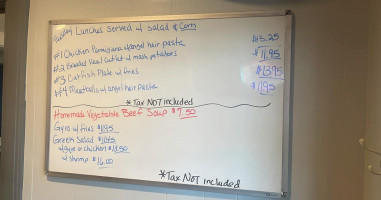 Lunches Served w/ salad & Corn
#1 Chicken Parmigiana w/angel hair pasta $13.25
#2 Breaded Veal Cutlet w/ mash potatoes $11.95
#3 Catfish Plate w/ fries $13.75
#4 Meatballs w/ angel hair pasta $11.95
* Tax NOT included
Homemade Vegetable Beef Soup $7.50
Gyro w/ fries
Greek Salad
w/gyro or chicken
w/ shrimp $16.00
*Tax NOT included